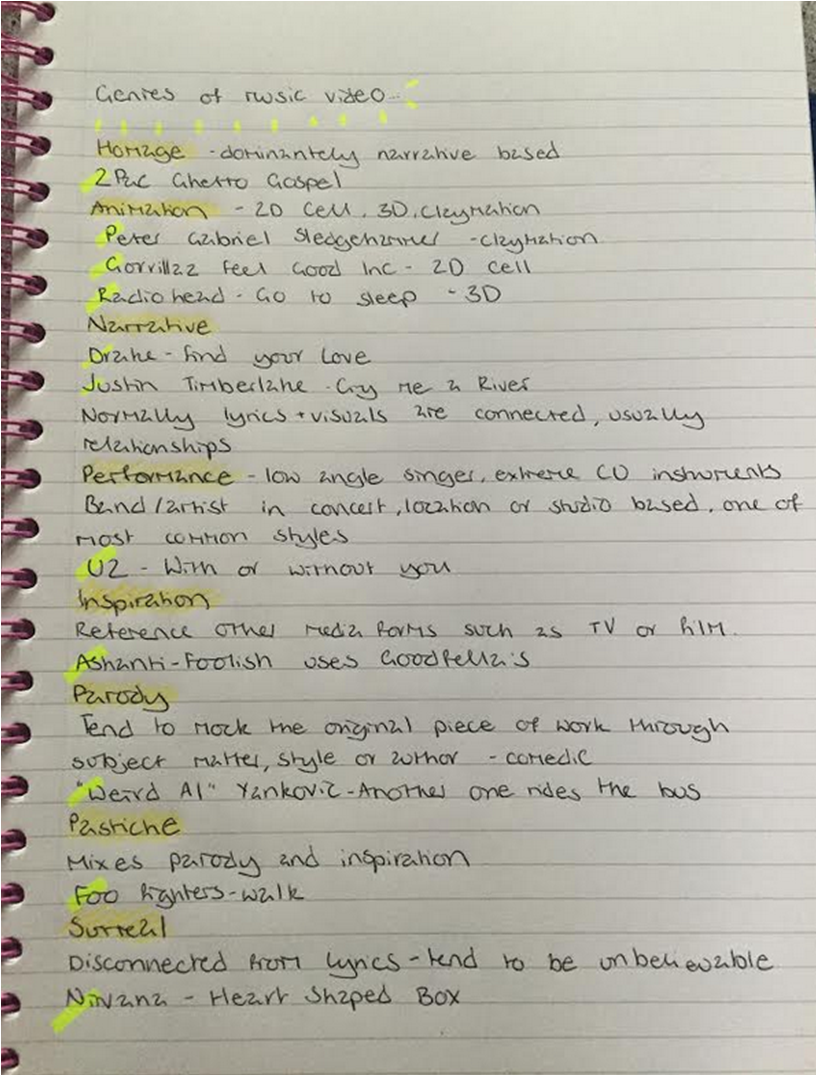 Genres of music video...
Homage - dominantely narrative based
2Pac Ghetto Gospel
Animation - 2D Cell, 3D, Claymation
Peter Gabriel Sledgehammer - claymation
Gorrillaz Feel Good Inc - 2D cell
Radiohead - Go to sleep - 3D
Narrative
Drake - find your love
Justin Timberlake - Cry me a River
Normally lyrics + visuals are connected, usually
relationships
Performance - low angle singer, extreme CU instruments
Band / artist in concert, location or studio based, one of
most common styles
U2 - With or without you
Inspiration
Reference other media forms such as TV or film.
Ashanti - Foolish uses Goodfella's
Parody
Tend to mock the original piece of work through
subject matter, style or author - comedic
"Weird Al" Yankovic - Another one rides the bus
Pastiche
Mixes parody and inspiration
Foo fighters - walk
Surreal
Disconnected from lyrics - tend to be unbelievable
Nirvana - Heart Shaped Box